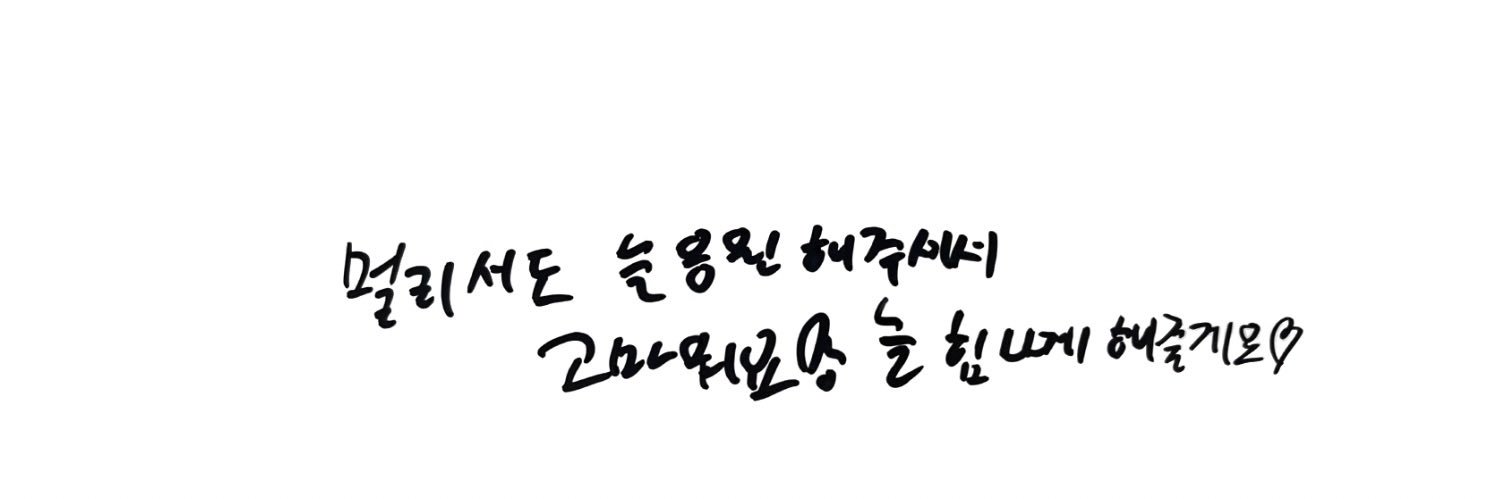 멀리서도 늘 응원 해주셔서
고마워요 항상 늘 힘나게 해줄게요♡